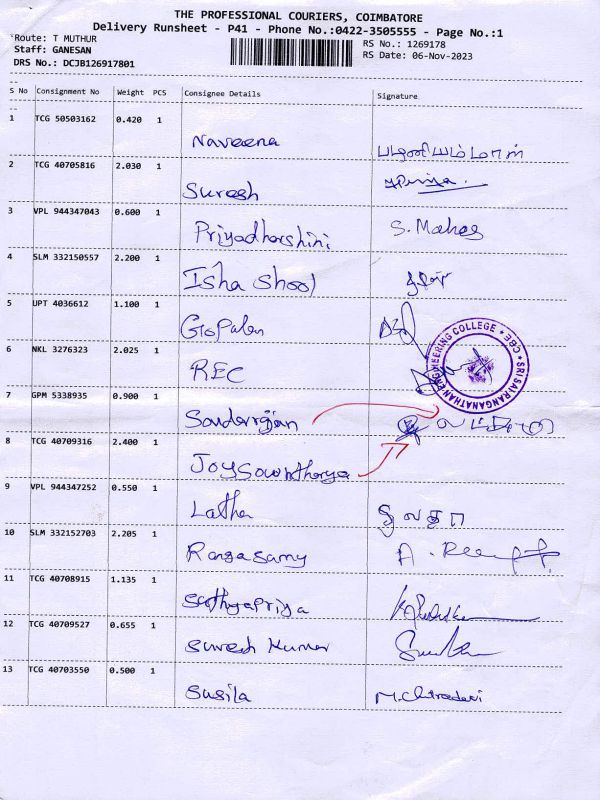 THE PROFESSIONAL COURIERS, COIMBATORE
Delivery Runsheet - P41 - Phone No.:0422-3505555 - Page No.:1
Route: T MUTHUR
Staff: GANESAN
DRS No.: DCJB126917801
RS No.: 1269178
RS Date: 06-Nov-2023
S No Consignment No Weight PCS Consignee Details Signature
1 TCG 50503162 0.420 1 Naveena பழனியம்மாள்
2 TCG 40705816 2.030 1 Suresh
3 VPL 944347043 0.600 1 Priyadharshini S. Mahes
4 SLM 332150557 2.200 1 Isha Shool
5 UPT 4036612 1.100 1 Gopalan
6 NKL 3276323 2.025 1 REC
SRI SAI RANGANATHAN ENGINEERING COLLEGE * CBE *
7 GPM 5338935 0.900 1 Sounderrajan
8 TCG 40709316 2.400 1 Joysowntharya
9 VPL 944347252 0.550 1 Latha ஸ்ரீலதா
10 SLM 332152703 2.205 1 Rangasamy
11 TCG 40708915 1.135 1 SathyaPriya
12 TCG 40709527 0.655 1 Suresh Kumar
13 TCG 40703550 0.500 1 Susila M.Chitradevi